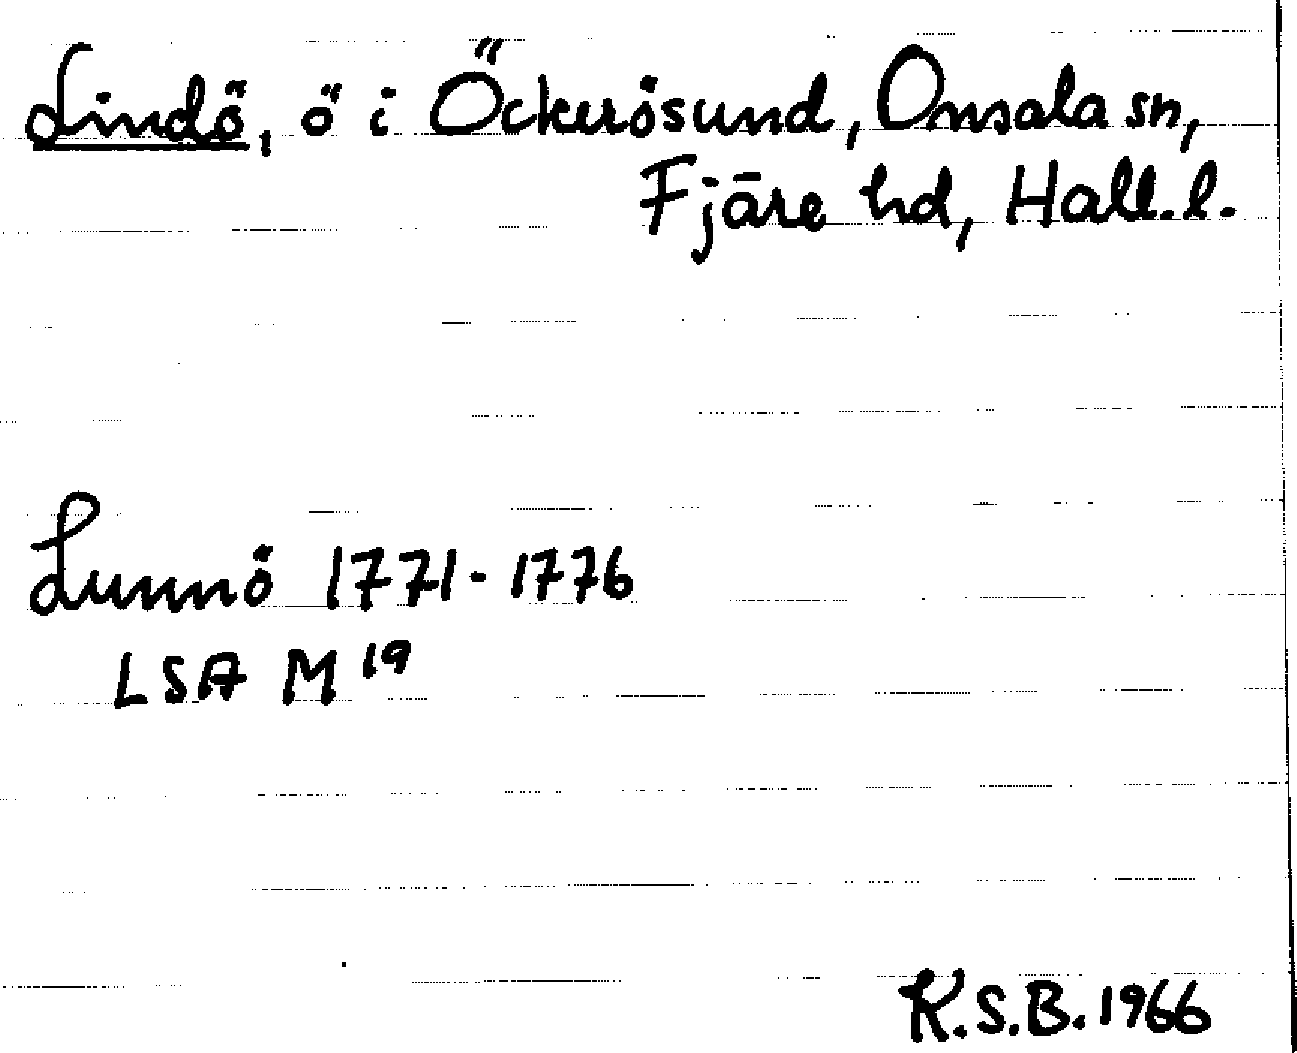 Lindö, ö i Öckerösund, Onsala sn,
Fjäre hd, Hall.l.
Lunnö 1771-1776
LSA M 19
K.S.B. 1966